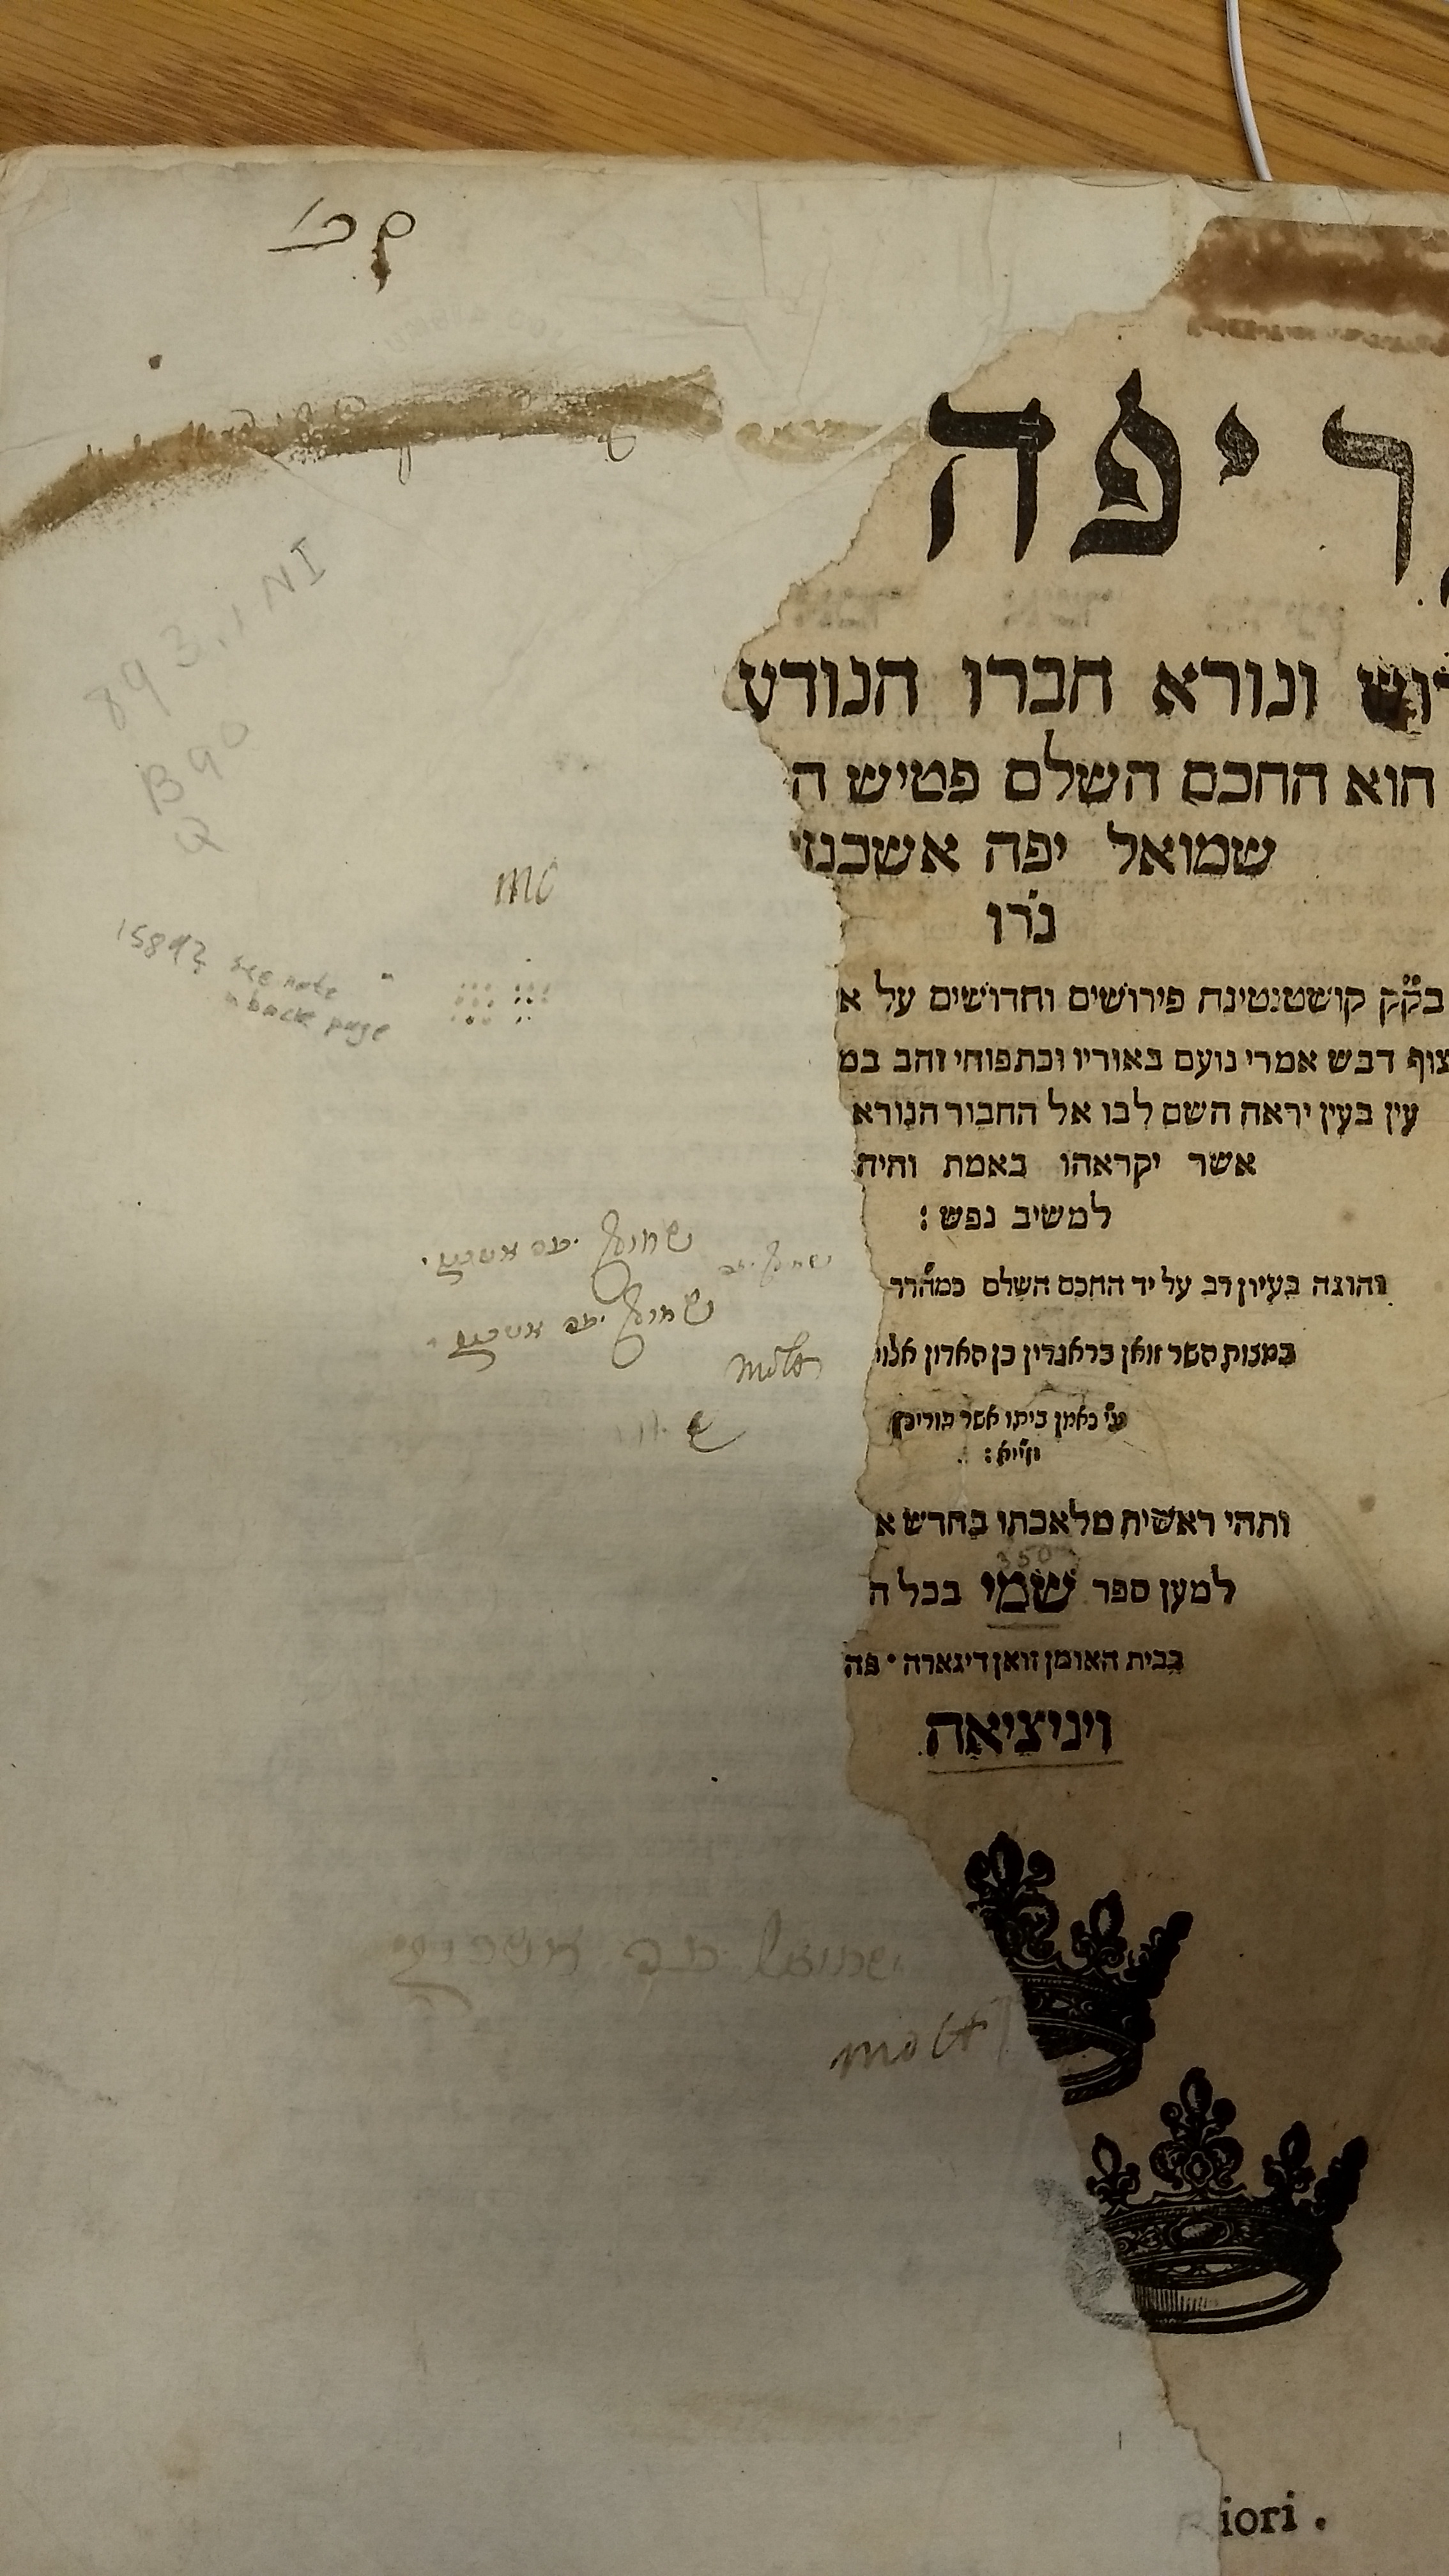 יפה
ונורא חברו הנודע
הוא החכם השלם פטיש ה
שמואל יפה אשכנזי
נרו
בקק קושטנטינה פירושים וחדושים על א
צוף דבש אמרי נועם באוריו וכתפוחי זהב במ
עין בעין יראה השם לבו אל החבור הנורא
אשר יקראהו באמת וחיה
למשיב נפש :
והוגה בעיון רב על יד החכם השלם כמהרר
במצות השר זואן בראגדין בן
ביתו אשר
ותהי ראשית מלאכתו בחדש א
350
למען ספר שמי בכל ה
בבית האומן זואן דיגארה • פה
ויניציאה
iori .
893.1 NI
B 90
Q
mc
1589? see note
back page
שמואל יפה אשכנזי
שמואל יפה
שמואל יפה אשכנזי
ש
שמואל יפה אשכנזי